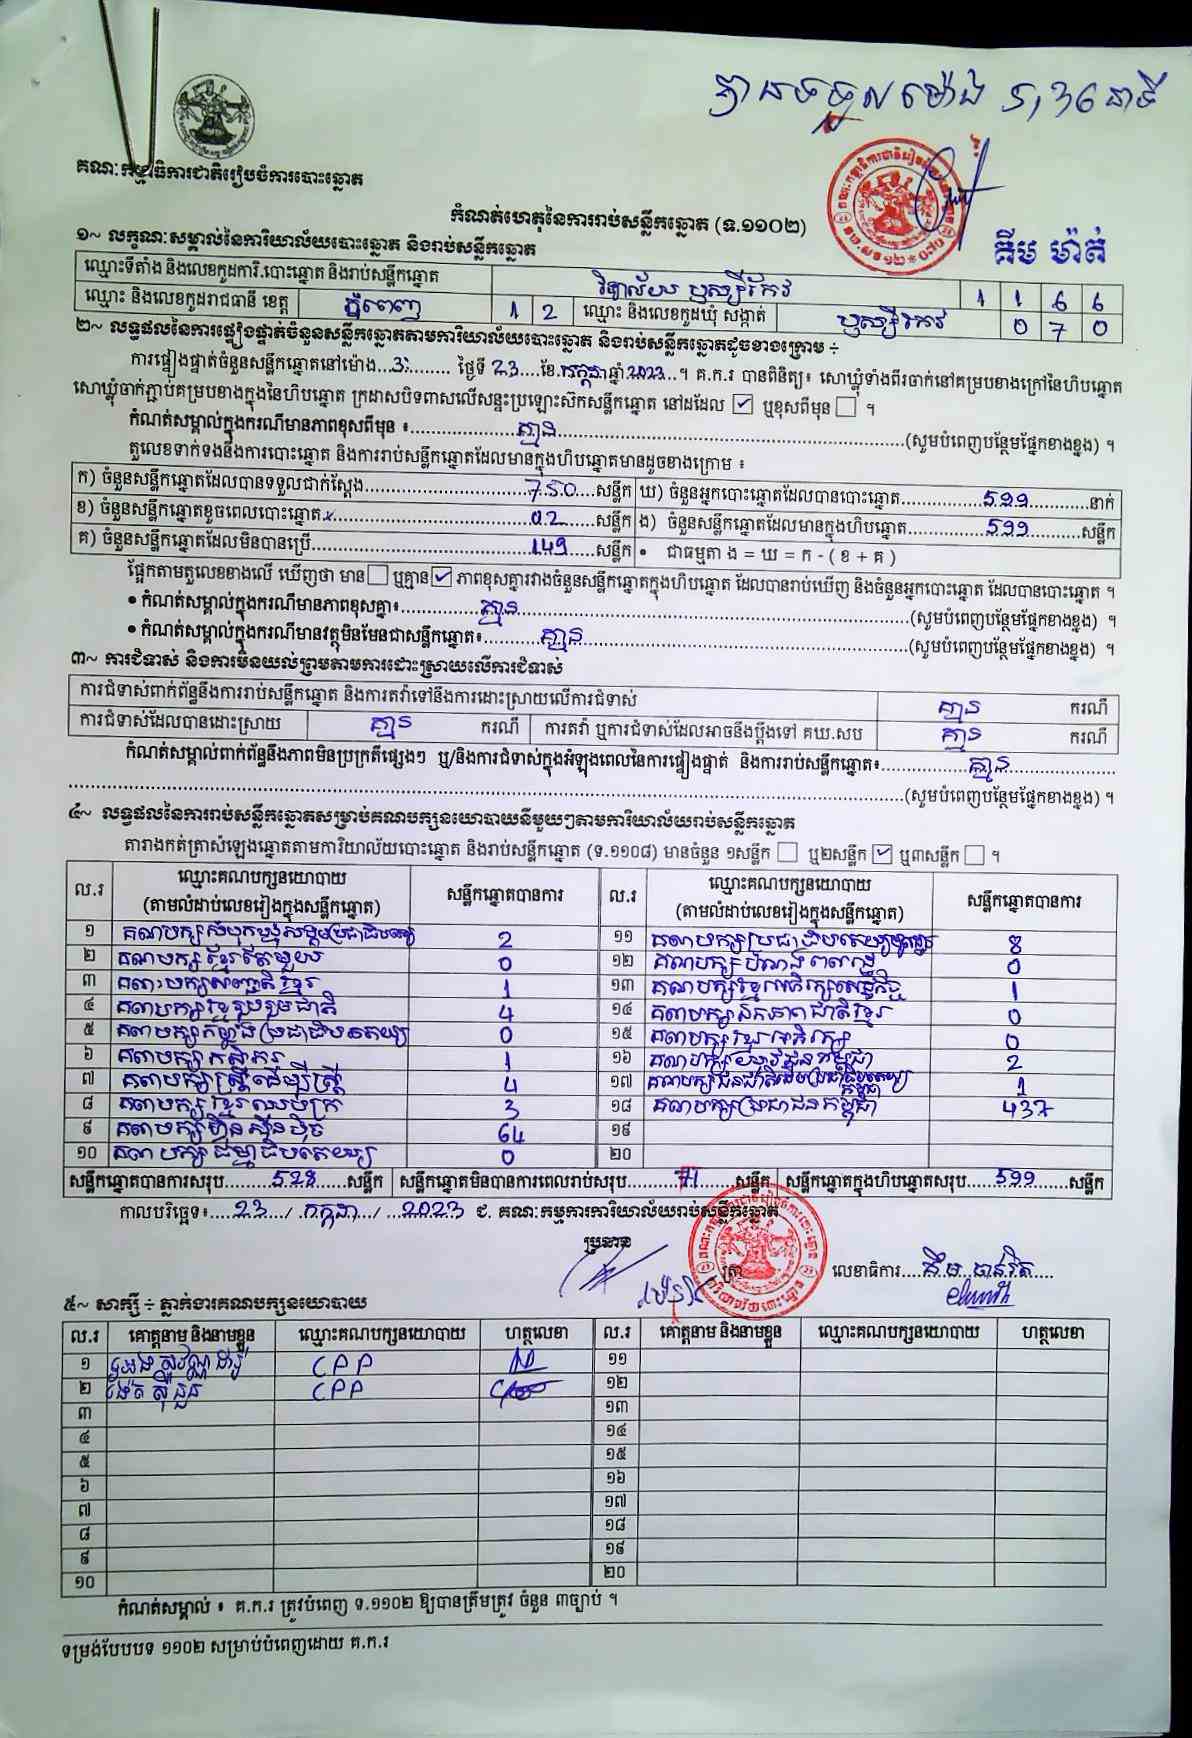 បានទទួលម៉ោង 5,36 នាទី
គណៈកម្មាធិការជាតិរៀបចំការបោះឆ្នោត
កំណត់ហេតុនៃការរាប់សន្លឹកឆ្នោត (ទ.១១០២)
គឹម ម៉ាត់
១~ លក្ខណៈសម្គាល់នៃការិយាល័យបោះឆ្នោត និងរាប់សន្លឹកឆ្នោត
ឈ្មោះទីតាំង និងលេខកូដការិ.បោះឆ្នោត និងរាប់សន្លឹកឆ្នោត វិទ្យាល័យ ឫស្សីកែវ 1 1 6 6
ឈ្មោះ និងលេខកូដរាជធានី ខេត្ត ភ្នំពេញ 1 2 ឈ្មោះ និងលេខកូដឃុំ សង្កាត់ ឫស្សីកែវ 0 7 0
២~ លទ្ធផលនៃការផ្ទៀងផ្ទាត់ចំនួនសន្លឹកឆ្នោតតាមការិយាល័យបោះឆ្នោត និងរាប់សន្លឹកឆ្នោតដូចខាងក្រោម ÷
ការផ្ទៀងផ្ទាត់ចំនួនសន្លឹកឆ្នោតនៅម៉ោង...3:......... ថ្ងៃទី 23....ខែ.កក្កដា ឆ្នាំ 2023...។ គ.ក.រ បានពិនិត្យ៖ សោឃ្លុំទាំងពីរចាក់នៅគម្របខាងក្រៅនៃហិបឆ្នោត
សោឃ្លុំចាក់ភ្ជាប់គម្របខាងក្នុងនៃហិបឆ្នោត ក្រដាសបិទពាសលើសន្ទះប្រឡោះស៊កសន្លឹកឆ្នោត នៅដដែល ☑ ឬខុសពីមុន ☐ ។
កំណត់សម្គាល់ក្នុងករណីមានភាពខុសពីមុន ៖.................គ្មាន.................(សូមបំពេញបន្ថែមផ្នែកខាងខ្នង) ។
តួលេខទាក់ទងនឹងការបោះឆ្នោត និងការរាប់សន្លឹកឆ្នោតដែលមានក្នុងហិបឆ្នោតមានដូចខាងក្រោម ៖
ក) ចំនួនសន្លឹកឆ្នោតដែលបានទទួលជាក់ស្តែង.................750....សន្លឹក ឃ) ចំនួនអ្នកបោះឆ្នោតដែលបានបោះឆ្នោត..............599............នាក់
ខ) ចំនួនសន្លឹកឆ្នោតខូចពេលបោះឆ្នោត.................02......សន្លឹក ង) ចំនួនសន្លឹកឆ្នោតដែលមានក្នុងហិបឆ្នោត..............599...........សន្លឹក
គ) ចំនួនសន្លឹកឆ្នោតដែលមិនបានប្រើ.................149.....សន្លឹក • ជាធម្មតា ង = ឃ = ក - ( ខ + គ )
ផ្អែកតាមតួលេខខាងលើ ឃើញថា មាន ☐ ឬគ្មាន ☑ ភាពខុសគ្នារវាងចំនួនសន្លឹកឆ្នោតក្នុងហិបឆ្នោត ដែលបានរាប់ឃើញ និងចំនួនអ្នកបោះឆ្នោត ដែលបានបោះឆ្នោត ។
• កំណត់សម្គាល់ក្នុងករណីមានភាពខុសគ្នា៖..............គ្មាន..............(សូមបំពេញបន្ថែមផ្នែកខាងខ្នង) ។
• កំណត់សម្គាល់ក្នុងករណីមានវត្ថុមិនមែនជាសន្លឹកឆ្នោត៖...........គ្មាន..............(សូមបំពេញបន្ថែមផ្នែកខាងខ្នង) ។
៣~ ការជំទាស់ និងការមិនយល់ព្រមតាមការដោះស្រាយលើការជំទាស់
ការជំទាស់ពាក់ព័ន្ធនឹងការរាប់សន្លឹកឆ្នោត និងការតវ៉ាទៅនឹងការដោះស្រាយលើការជំទាស់ គ្មាន ករណី
ការជំទាស់ដែលបានដោះស្រាយ គ្មាន ករណី ការតវ៉ា ឬការជំទាស់ដែលអាចនឹងប្តឹងទៅ គឃ.សប គ្មាន ករណី
កំណត់សម្គាល់ពាក់ព័ន្ធនឹងភាពមិនប្រក្រតីផ្សេងៗ ឬ/និងការជំទាស់ក្នុងអំឡុងពេលនៃការផ្ទៀងផ្ទាត់ និងការរាប់សន្លឹកឆ្នោត៖..............គ្មាន..............
..............(សូមបំពេញបន្ថែមផ្នែកខាងខ្នង) ។
៤~ លទ្ធផលនៃការរាប់សន្លឹកឆ្នោតសម្រាប់គណបក្សនយោបាយនីមួយៗតាមការិយាល័យរាប់សន្លឹកឆ្នោត
តារាងកត់ត្រាសំឡេងឆ្នោតតាមការិយាល័យបោះឆ្នោត និងរាប់សន្លឹកឆ្នោត (ទ.១១០៨) មានចំនួន ១សន្លឹក ☐ ឬ២សន្លឹក ☑ ឬ៣សន្លឹក ☐ ។
ល.រ ឈ្មោះគណបក្សនយោបាយ (តាមលំដាប់លេខរៀងក្នុងសន្លឹកឆ្នោត) សន្លឹកឆ្នោតបានការ ល.រ ឈ្មោះគណបក្សនយោបាយ (តាមលំដាប់លេខរៀងក្នុងសន្លឹកឆ្នោត) សន្លឹកឆ្នោតបានការ
១ គណបក្សសំបុកឃ្មុំសង្គមប្រជាធិបតេយ្យ 2 ១១ គណបក្សប្រជាធិបតេយ្យមូលដ្ឋាន 8
២ គណបក្សខ្មែរតែមួយ 0 ១២ គណបក្ស 0
៣ គណបក្សសញ្ជាតិខ្មែរ 1 ១៣ គណបក្សខ្មែរអភិវឌ្ឍសេដ្ឋកិច្ច 1
៤ គណបក្សខ្មែររួបរួមជាតិ 4 ១៤ គណបក្សឯកភាពជាតិខ្មែរ 0
៥ គណបក្សកម្លាំងប្រជាធិបតេយ្យ 0 ១៥ គណបក្សខ្មែរអភិរក្ស 0
៦ គណបក្សកសិករ 1 ១៦ គណបក្សយុវជនកម្ពុជា 2
៧ គណបក្សស្ត្រីដើម្បីស្ត្រី 4 ១៧ គណបក្សជនជាតិដើមប្រជាធិបតេយ្យកម្ពុជា 1
៨ គណបក្សខ្មែរឈប់ក្រ 3 ១៨ គណបក្សប្រជាជនកម្ពុជា 437
៩ គណបក្សហ៊្វុនស៊ិនប៉ិច 64 ១៩
១០ គណបក្សធម្មាធិបតេយ្យ 0 ២០
សន្លឹកឆ្នោតបានការសរុប.........528......សន្លឹក សន្លឹកឆ្នោតមិនបានការពេលរាប់សរុប.........71......សន្លឹក សន្លឹកឆ្នោតក្នុងហិបឆ្នោតសរុប......599.......សន្លឹក
កាលបរិច្ឆេទ៖.....23...../ កក្កដា..../ ......2023 ជ. គណៈកម្មការការិយាល័យរាប់សន្លឹកឆ្នោត
ប្រធាន
ត្រា លេខាធិការ....គឹម ចាន់រិត....
៥~ សាក្សី ÷ ភ្នាក់ងារគណបក្សនយោបាយ
ល.រ គោត្តនាម និងនាមខ្លួន ឈ្មោះគណបក្សនយោបាយ ហត្ថលេខា ល.រ គោត្តនាម និងនាមខ្លួន ឈ្មោះគណបក្សនយោបាយ ហត្ថលេខា
១ CPP ១១
២ CPP ១២
៣ ១៣
៤ ១៤
៥ ១៥
៦ ១៦
៧ ១៧
៨ ១៨
៩ ១៩
១០ ២០
កំណត់សម្គាល់ ៖ គ.ក.រ ត្រូវបំពេញ ទ.១១០២ ឱ្យបានត្រឹមត្រូវ ចំនួន ៣ច្បាប់ ។
ទម្រង់បែបបទ ១១០២ សម្រាប់បំពេញដោយ គ.ក.រ